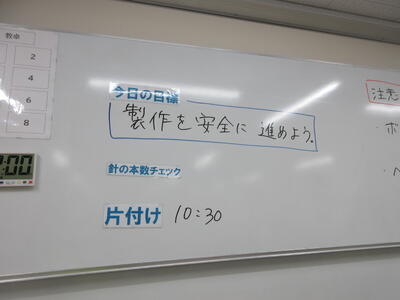 教卓
2
4
6
8
:00
今日の目標
製作を安全に進めよう。
針の本数チェック
片付け 10:30
注意
・ボ